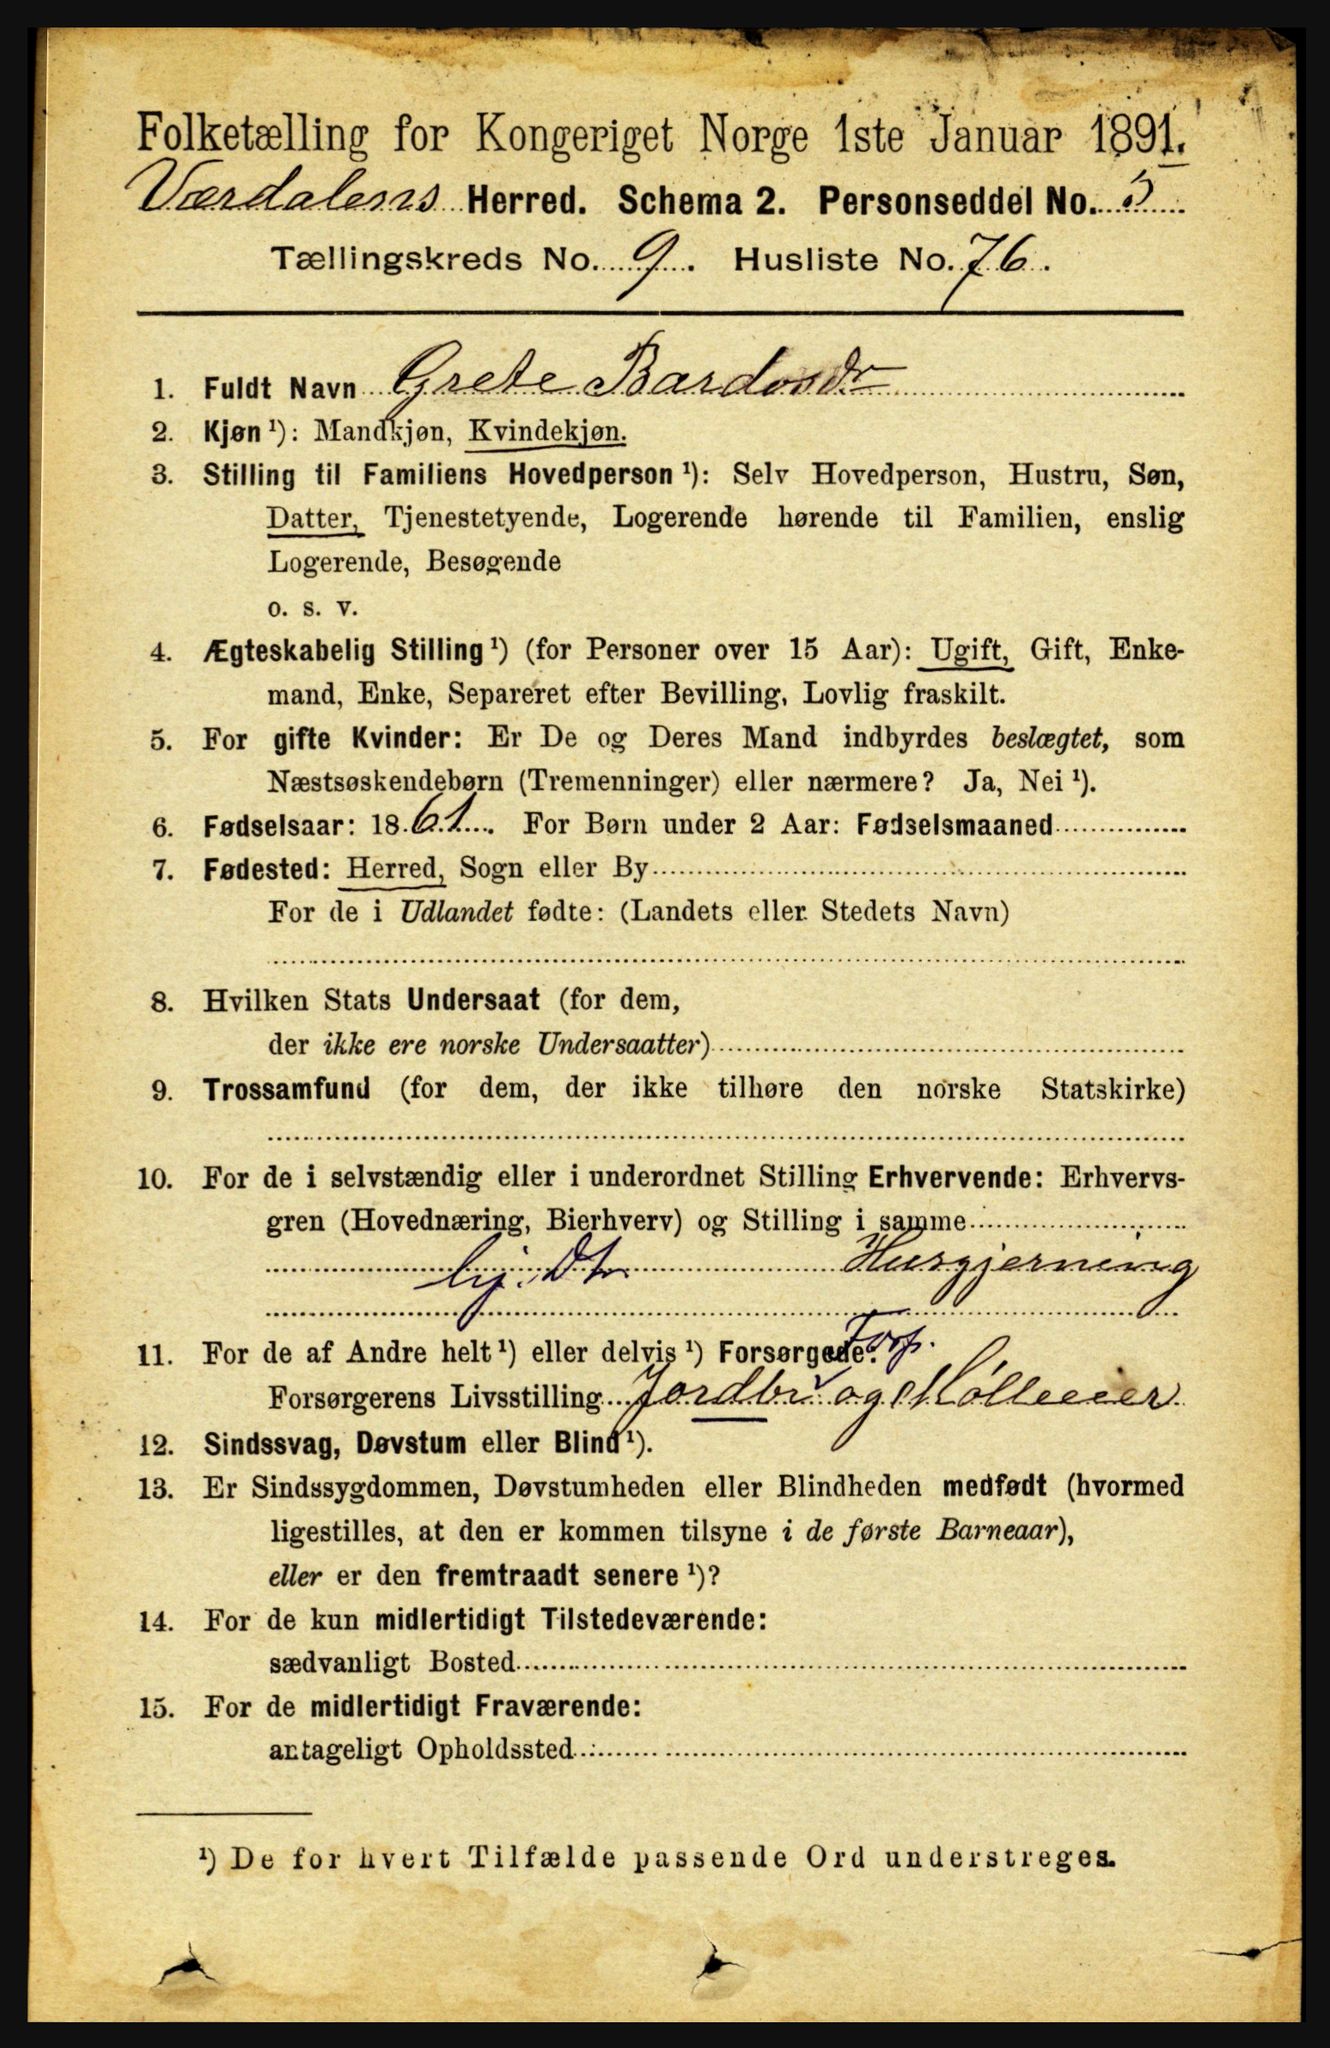 Folketælling for Kongeriget Norge 1ste Januar 1891.
Værdalens Herred. Schema 2. Personseddel No. 5
Tællingskreds No. 9. Husliste No. 76.
1. Fuldt Navn Grete Bardosdr
2. Kjøn ¹): Mandkjøn, Kvindekjøn.
3. Stilling til Familiens Hovedperson ¹): Selv Hovedperson, Hustru, Søn,
Datter, Tjenestetyende, Logerende hørende til Familien, enslig
Logerende, Besøgende
o. s. v.
4. Ægteskabelig Stilling ¹) (for Personer over 15 Aar): Ugift, Gift, Enke-
mand, Enke, Separeret efter Bevilling, Lovlig fraskilt.
5. For gifte Kvinder: Er De og Deres Mand indbyrdes beslægtet, som
Næstsøskendebørn (Tremenninger) eller nærmere? Ja, Nei ¹).
6. Fødselsaar: 1861. For Børn under 2 Aar: Fødselsmaaned
7. Fødested: Herred, Sogn eller By
For de i Udlandet fødte: (Landets eller Stedets Navn)
8. Hvilken Stats Undersaat (for dem,
der ikke ere norske Undersaatter)
9. Trossamfund (for dem, der ikke tilhøre den norske Statskirke)
10. For de i selvstændig eller i underordnet Stilling Erhvervende: Erhvervs-
gren (Hovednæring, Bierhverv) og Stilling i samme
hj. Dtr Husgjerning
11. For de af Andre helt ¹) eller delvis ¹) Forsørgede:
Forsørgerens Livsstilling Jordbr og Mølleeier
12. Sindssvag, Døvstum eller Blind ¹).
13. Er Sindssygdommen, Døvstumheden eller Blindheden medfødt (hvormed
ligestilles, at den er kommen tilsyne i de første Barneaar),
eller er den fremtraadt senere ¹)?
14. For de kun midlertidigt Tilstedeværende:
sædvanligt Bosted
15. For de midlertidigt Fraværende:
antageligt Opholdssted
¹) De for hvert Tilfælde passende Ord understreges.